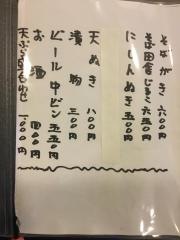 そばがき 六〇〇円
そば田舎じるこ 六五〇円
にしんぬき 五〇〇円
天ぬき 八〇〇円
漬物 三〇〇円
ビール中ビン 五五〇円
お酒 四〇〇円
天ぷら盛合わせ 一〇〇〇円